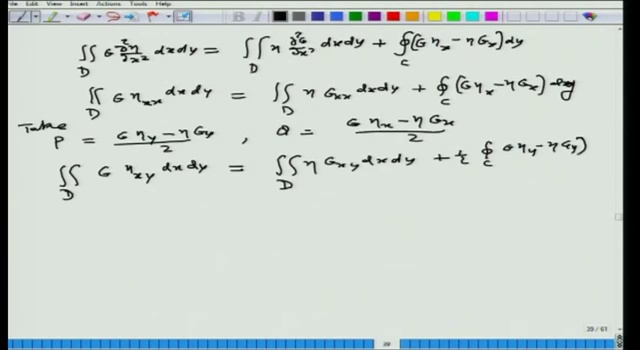 File Edit View Insert Actions Tools Help
∬_D G ∂²η/∂x² dxdy = ∬_D η ∂²G/∂x² dxdy + ∮_C (G η_x − η G_x) dy
∬_D G η_xx dxdy = ∬_D η G_xx dxdy + ∮_C (G η_x − η G_x) dy
Take P = (G η_y − η G_y)/2 , Q = (G η_x − η G_x)/2
∬_D G η_xy dxdy = ∬_D η G_xy dxdy + ½ ∮_C G η_y − η G_y)
39 / 61
39